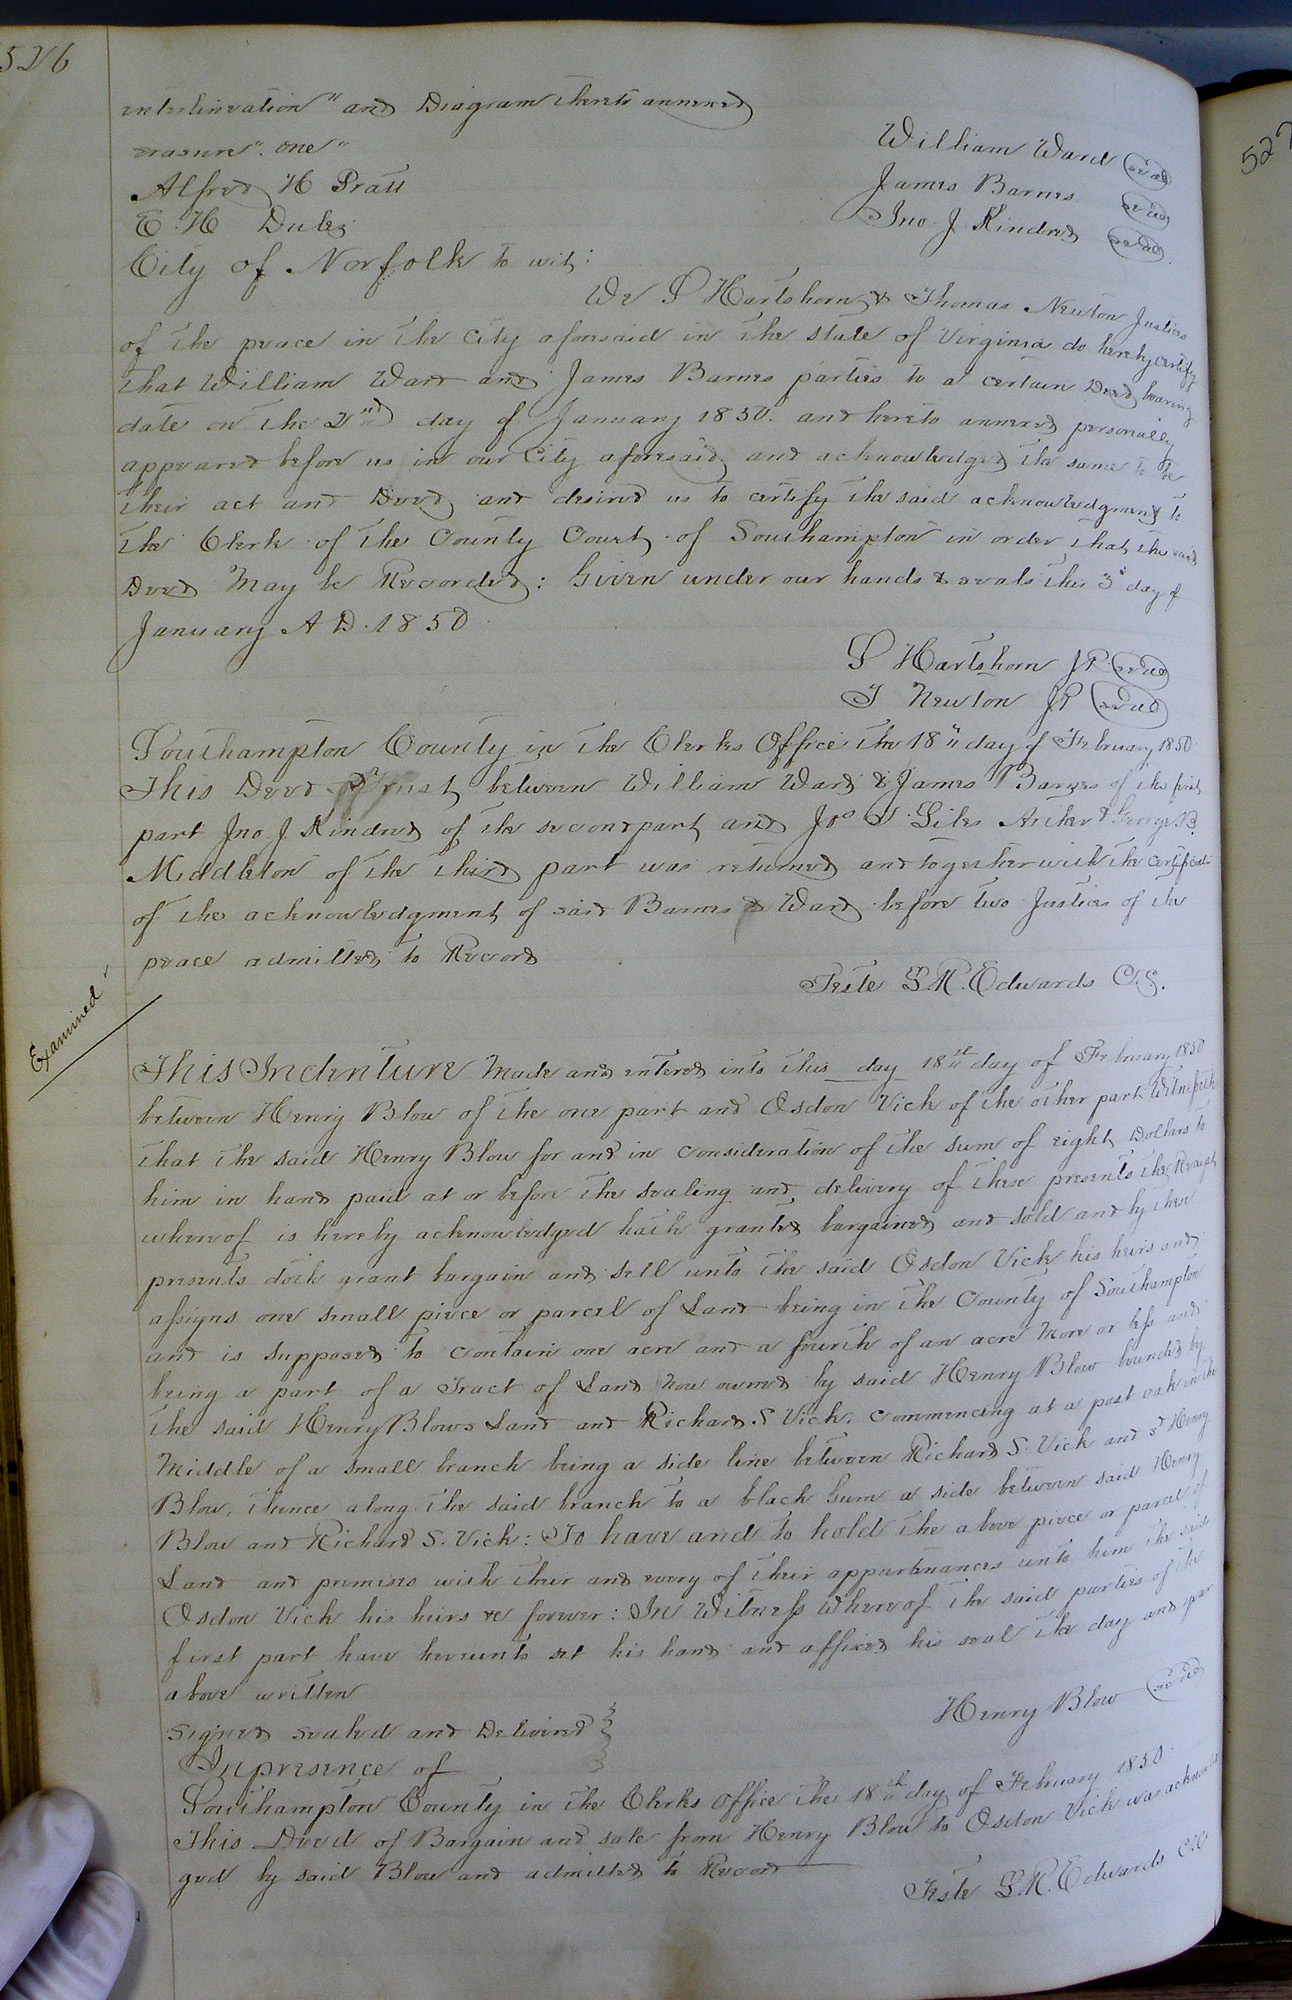 526
527
interlineation" and Diagram thereto annexed
erasure". one"
William Ward seal
Alfred H Pratt
James Barnes seal
E. H
Jno. J. Kindred seal
City of Norfolk to wit:
We S Hartshorn & Thomas Newton Justices
of the peace in the City aforesaid in the state of Virginia do hereby certify
that William Ward and James Barnes parties to a certain Deed bearing
date on the 2nd day of January 1850. and hereto annexed personally
appeared before us in our City aforesaid and acknowledged the same to be
their act and Deed and desired us to certify the said acknowledgment to
the Clerk of the County Court of Southampton in order that the said
Deed May be Recorded: Given under our hands & seals this 3d day of
January A D. 1850
S Hartshorn JP. seal
T Newton JP seal
Southampton County in the Clerks Office the 18" day of February 1850
This Deed Trust between William Ward & James Barnes of the first
part Jno J. Kindred of the second part and Jos Giles Archer & George B.
Middleton of the third part was returned and together with the certificate
of the acknowledgment of said Barnes & Ward before two Justices of the
peace admitted to Record
Teste L.R. Edwards C.S.
Examined
This Indenture Made and entered into this day 18th day of February 1850
between Henry Blow of the one part and Osdon Vick of the other part Witnesseth
that the said Henry Blow for and in consideration of the sum of eight Dollars to
him in hand paid at or before the sealing and delivery of these presents the Receipt
whereof is hereby acknowledged hath granted bargained and sold and by these
presents doth grant bargain and sell unto the said Osdon Vick his heirs and
assigns one small piece or parcel of Land being in the County of Southampton
and is supposed to contain one acre and a fourth of an acre More or less and
being a part of a Tract of Land Now owned by said Henry Blow bounded by
the said Henry Blows Land and Richard S Vick. Commencing at a post oak in the
Middle of a small branch being a side line between Richard S. Vick and sd Henry
Blow, thence along the said branch to a black Gum a side between said Henry
Blow and Richard S. Vick: To have and to hold the above piece or parcel of
Land and premises with their and every of their appurtenances unto him the said
Osdon Vick his heirs &c forever: In Witness Whereof the said parties of the
first part have hereunto set his hand and affixed his seal the day and year
above written
Henry Blow seal
Signed sealed and Delivered
In presence of
Southampton County in the Clerks Office the 18th day of February 1850.
This Deed of Bargain and sale from Henry Blow to Osdon Vick was acknowled
ged by said Blow and admitted to Record
Teste L.R. Edwards C.C